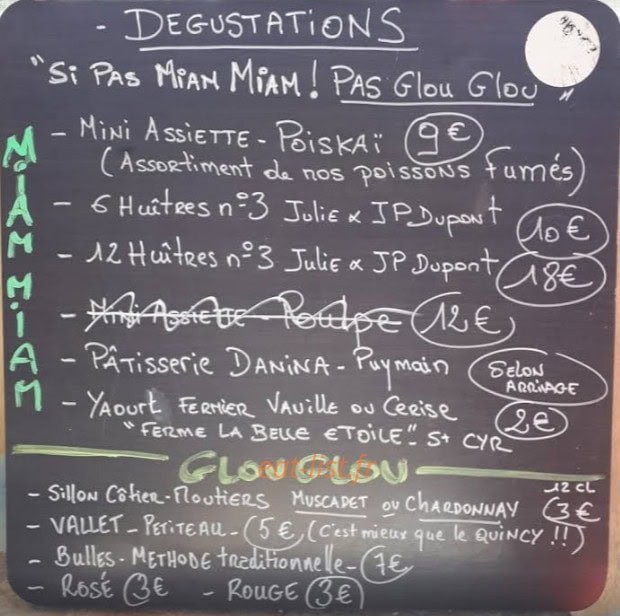 - DEGUSTATIONS
"SI PAS MIAM MIAM! PAS GLOU GLOU"
MIAM MIAM
- MINI ASSIETTE - POISKAÏ 9€
(ASSORTIMENT de NOS POISSONS fumés)
- 6 Huîtres n°3 Julie & JP Dupont 10€
- 12 Huîtres n°3 Julie & JP Dupont 18€
- Mini Assiette - Poulpe 12€
- PÂTisserie DANINA - Puymain SELON ARRIVAGE
- YAOURT FERMIER VAUILLE OU CERISE 2€
"FERME LA BELLE ETOILE" St CYR
GLOU GLOU
- Sillon Côtier - Moutiers MUSCADET ou CHARDONNAY 12 CL 3€
- VALLET - PETITEAU - 5€ (C'est mieux que le QUINCY !!)
- Bulles - METHODE traditionnelle - 7€
- ROSÉ 3€ - ROUGE 3€